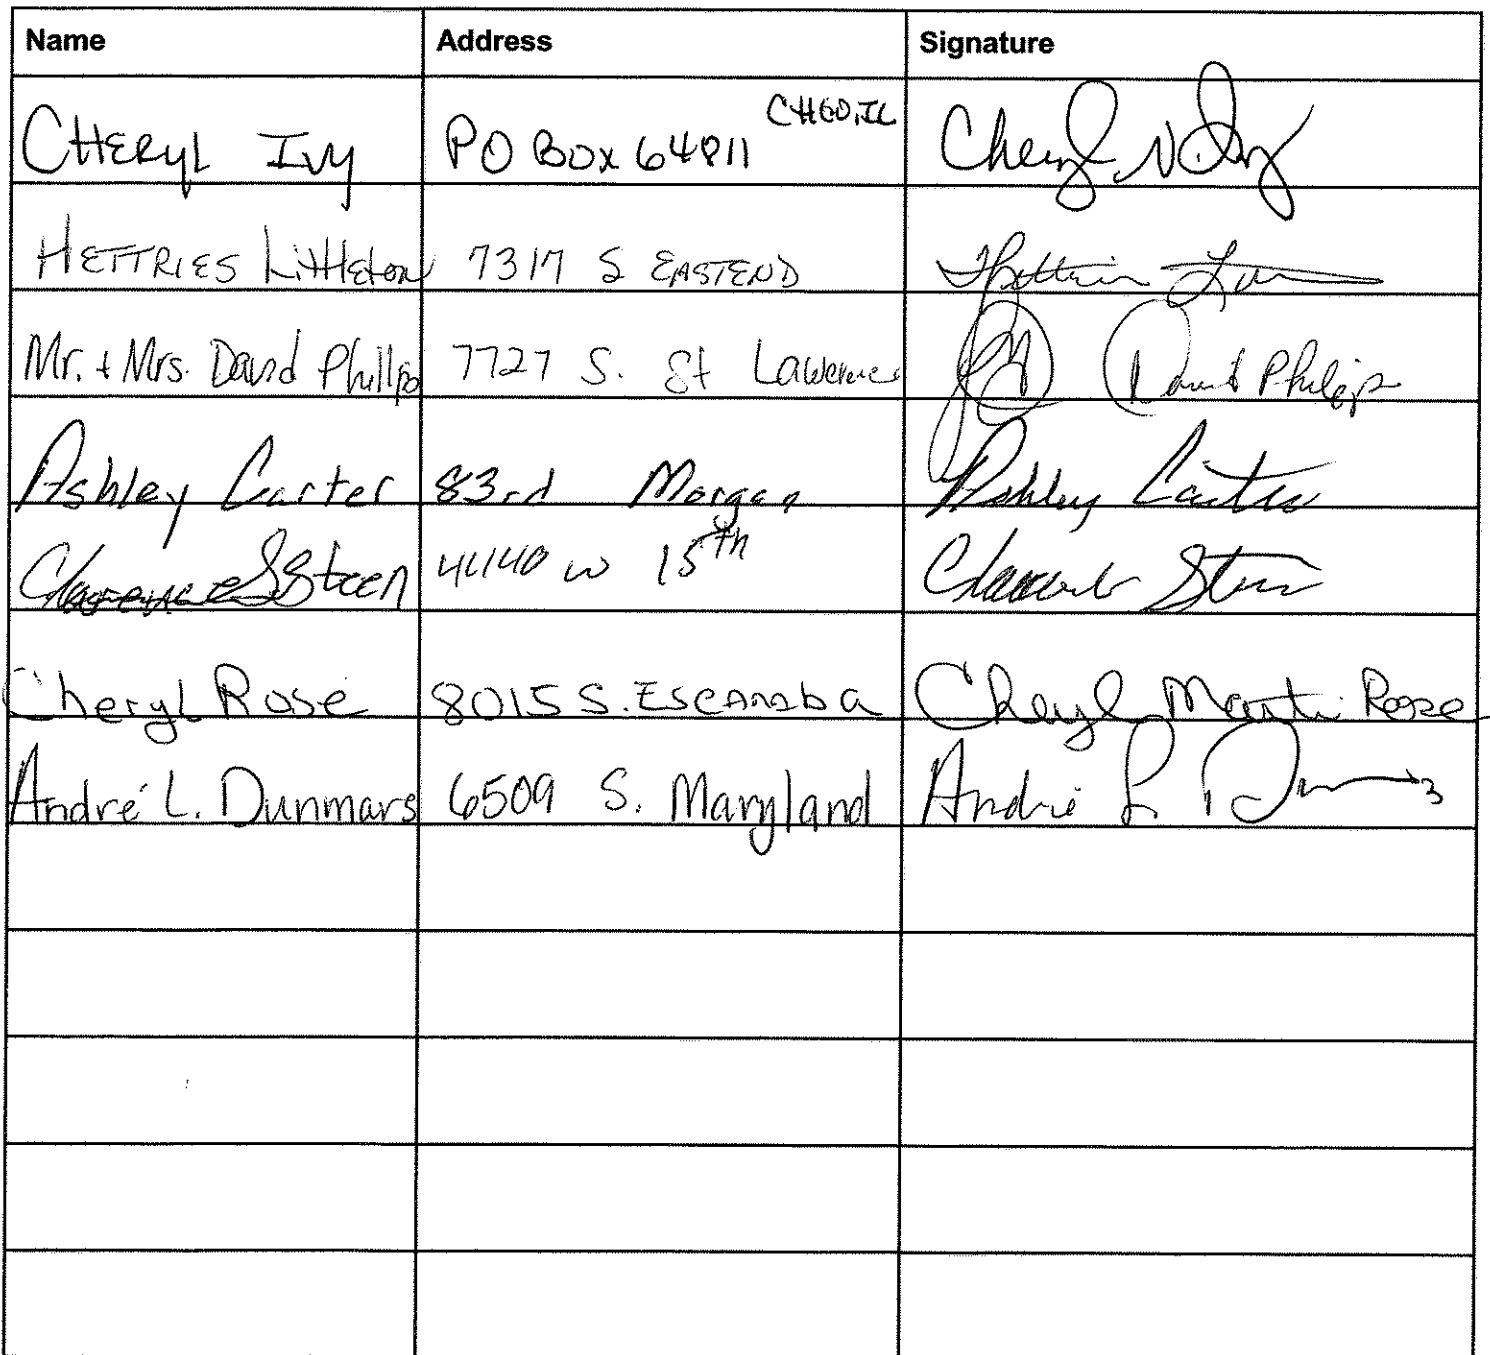 Name Address Signature
CHERYL Ivy PO Box 64811 CHGO, IL Cheryl N Ivy
HETTRIES Littleton 7317 S EASTEND
Mr. + Mrs. David Phillips 7727 S. St Lawerence David Philips
Ashley Carter 83rd Morgan Ashley Carter
Clarence Steen W 15th Steen
Cheryl Rose 8015 S. Escanaba Cheryl Martin Rose
André L. Dunmars 6509 S. Maryland André L